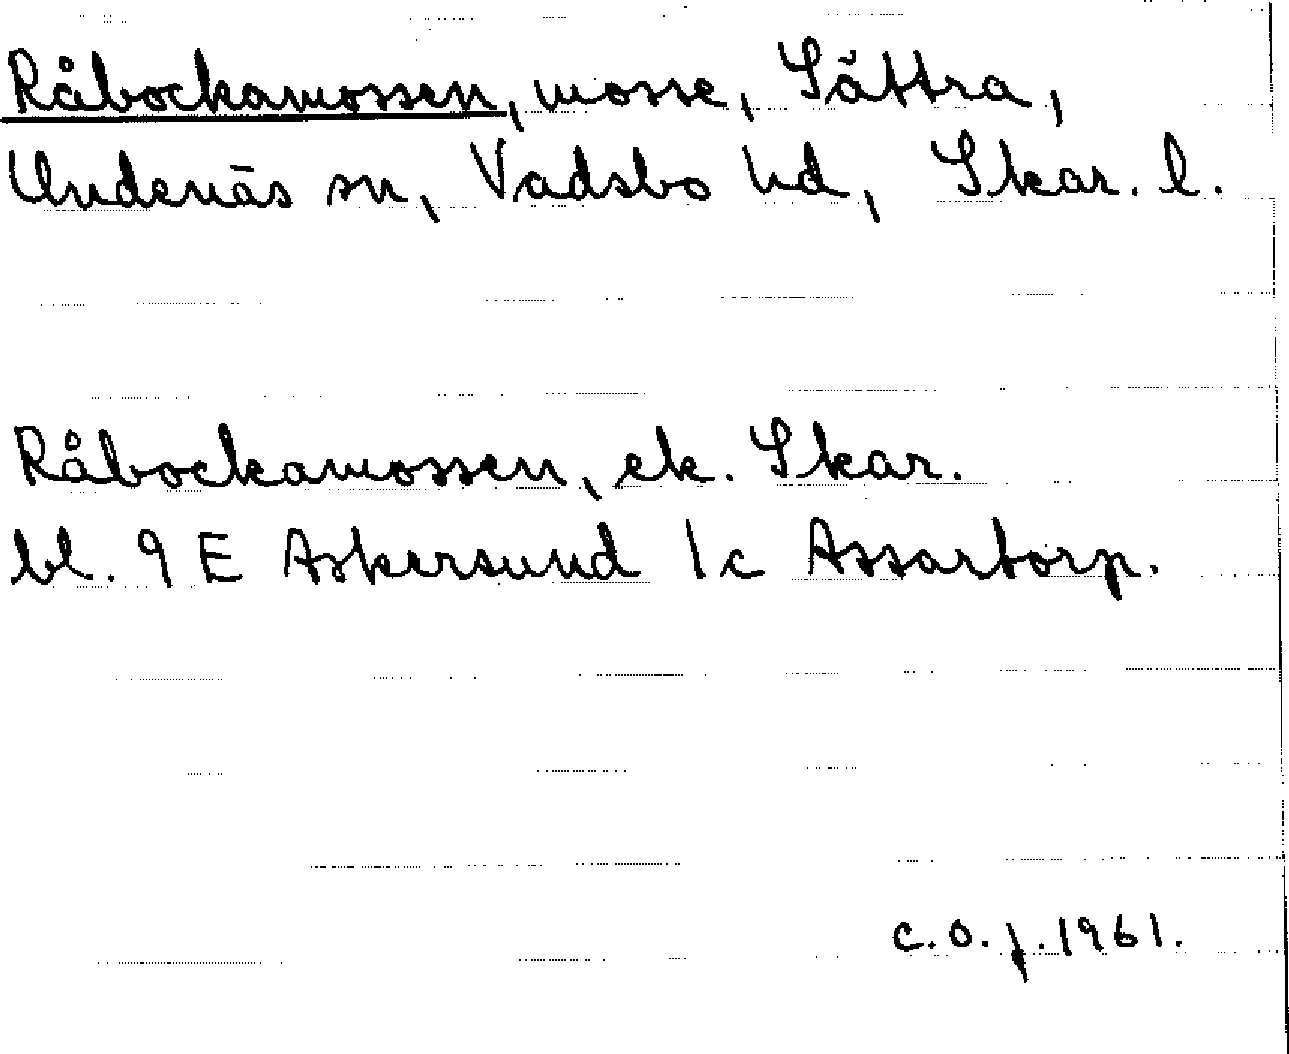 Råbockamossen, mosse, Sättra,
Undenäs sn, Vadsbo hd, Skar. l.
Råbockamossen, ek. Skar.
bl. 9 E Askersund 1c Assartorp.
C.O.f. 1961.